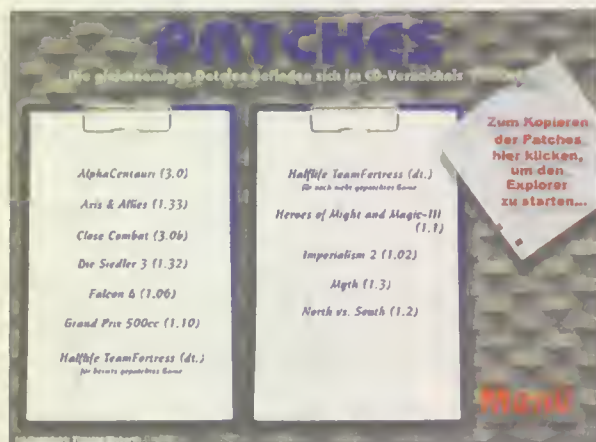 PATCHES
Die gleichnamigen Dateien befinden sich im CD-Verzeichnis
AlphaCentauri (3.0)
Axis & Allies (1.33)
Close Combat (3.0b)
Die Siedler 3 (1.32)
Falcon 4 (1.06)
Grand Prix 500cc (1.10)
Halflife TeamFortress (dt.)
für bereits gepatchtes Game
Halflife TeamFortress (dt.)
für noch nicht gepatchtes Game
Heroes of Might and Magic-III
(1.1)
Imperialism 2 (1.02)
Myth (1.3)
North vs. South (1.2)
Zum Kopieren
der Patches
hier klicken,
um den
Explorer
zu starten...
Menü